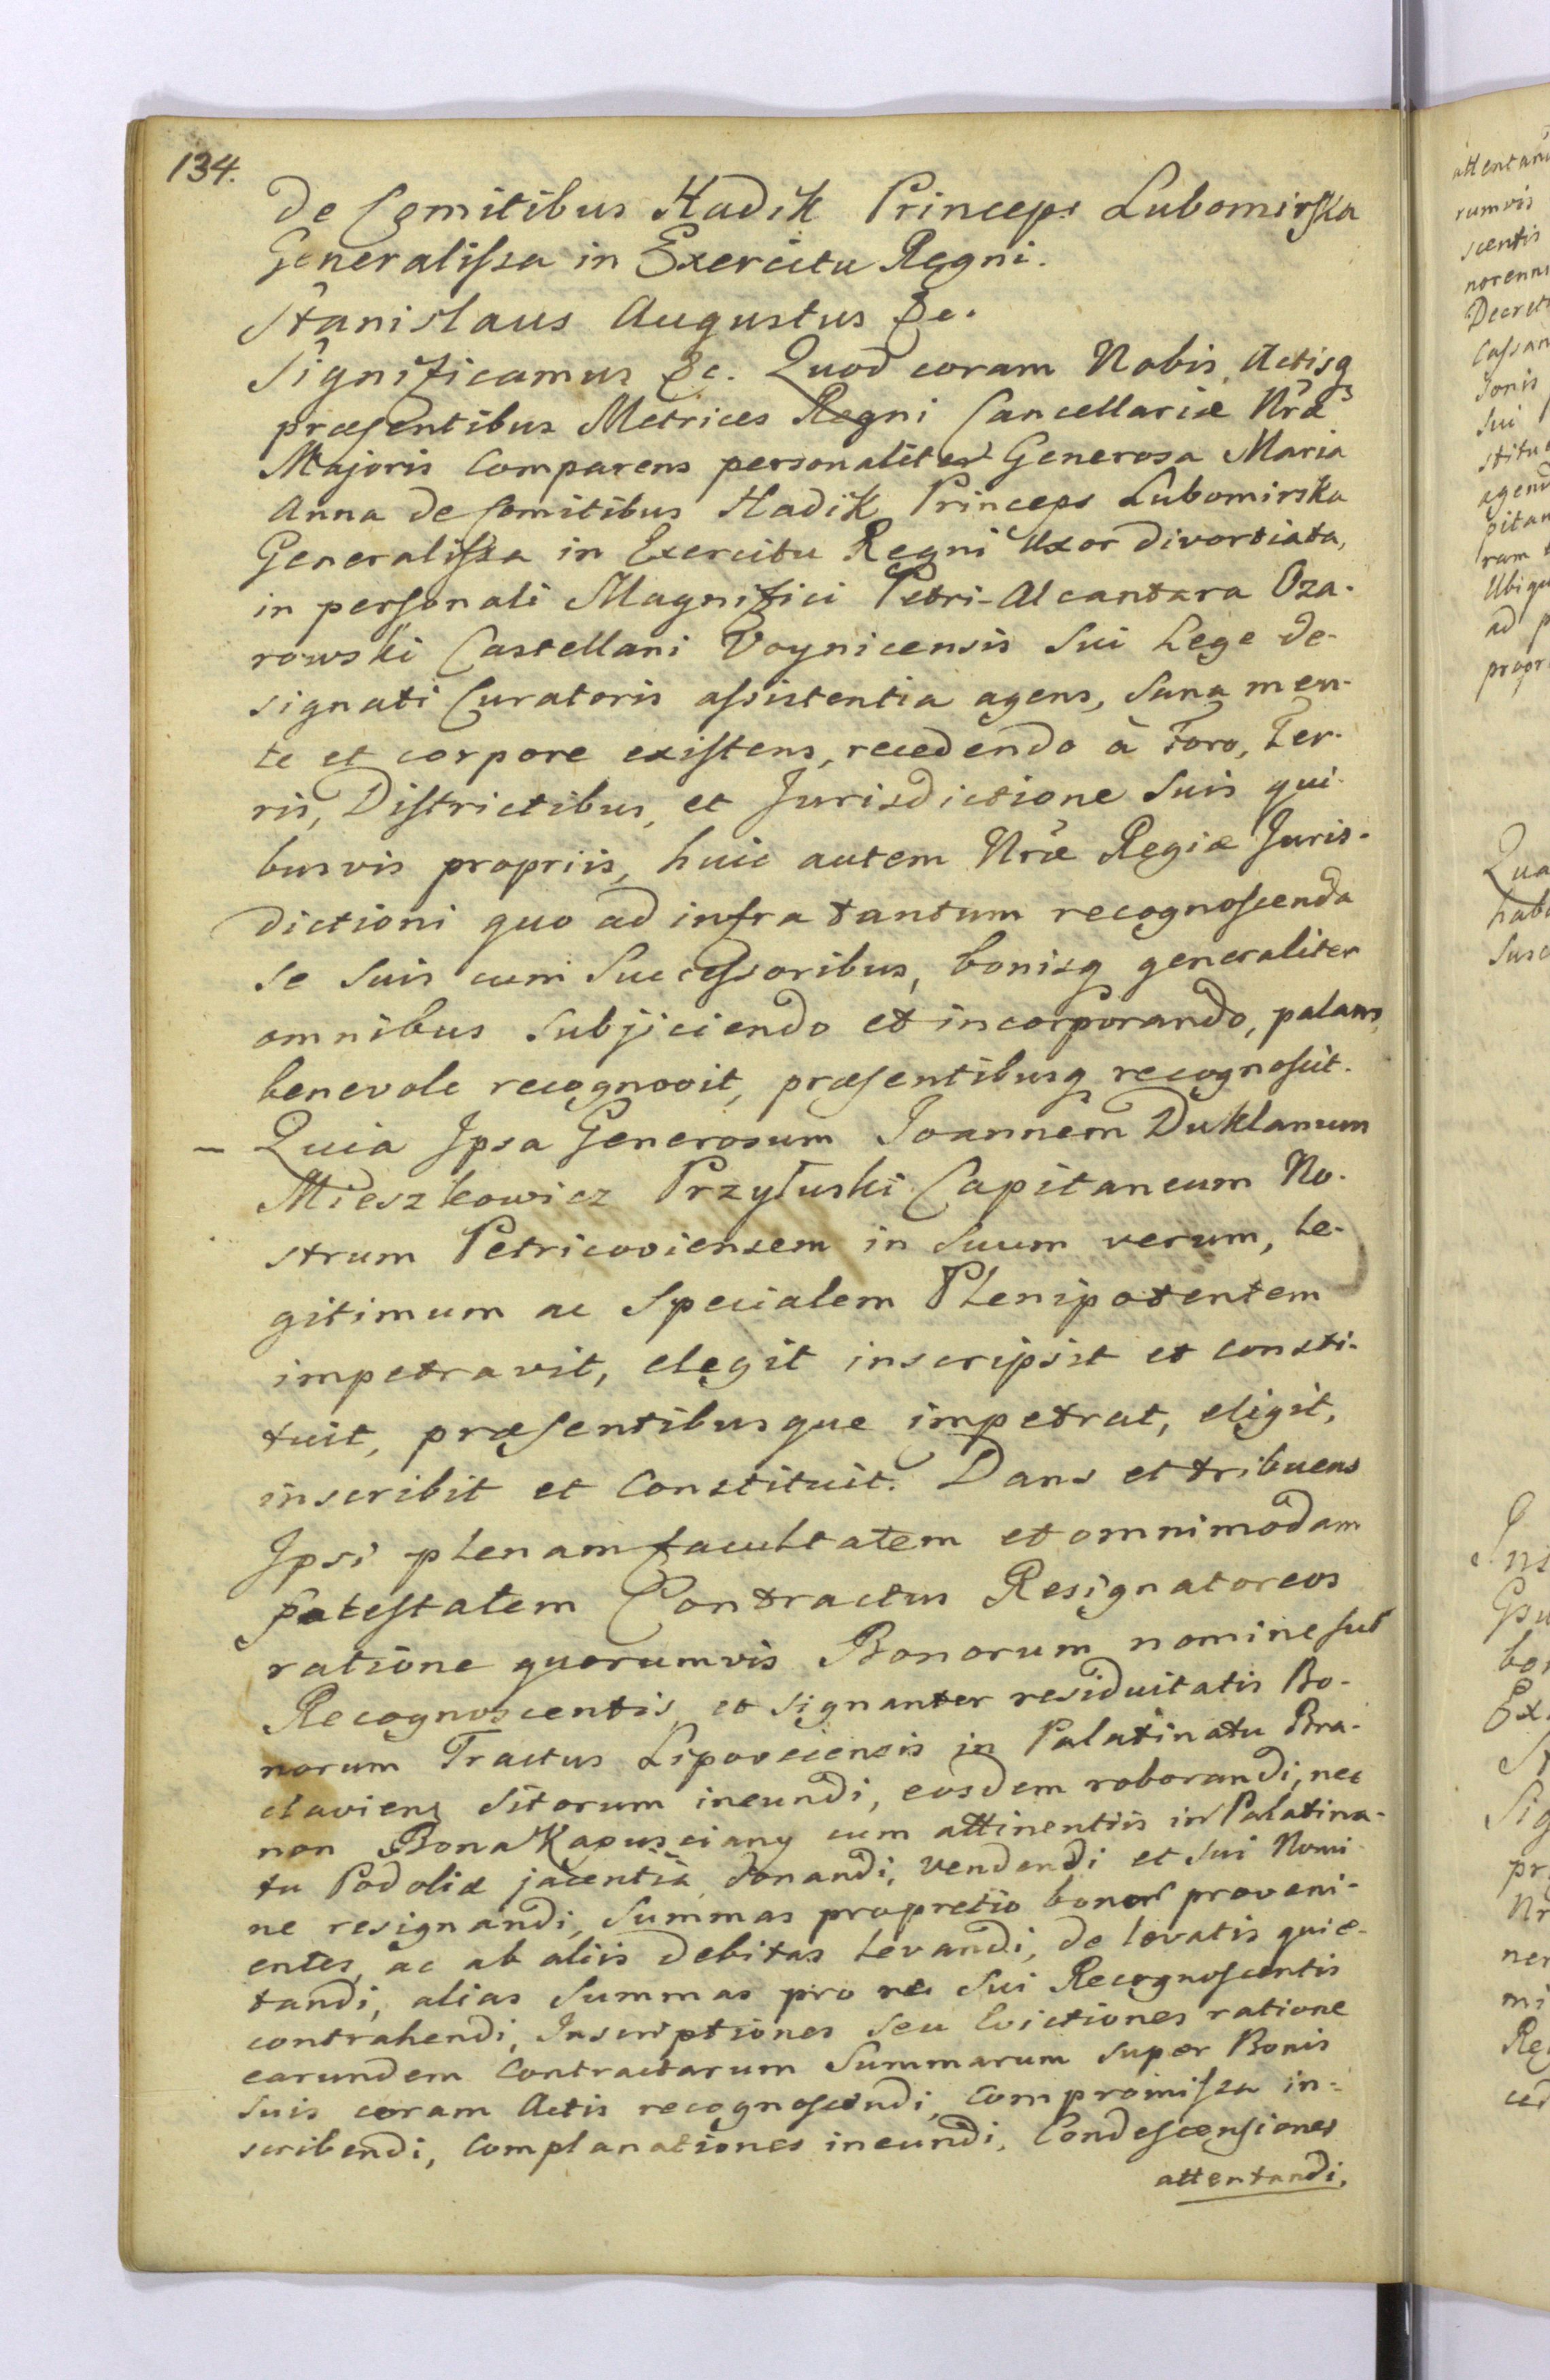 134.
de Comitibus Hadik Princeps Lubomirska
Generalissa in Exercitu Regni.
Stanislaus Augustus &c.
Significamus &c. Quod coram Nobis, Actisq
præsentibus Metrices Regni Cancellariæ Nræ
Majoris Comparens personaliter Generosa Maria
Anna de Comitibus Hadik Princeps Lubomirska
Generalissa in Exercitu Regni Uxor divortiata,
in personali Magnifici Petri-Alcantara Oza-
rowski Castellani Voynicensis Sui Lege de-
signati Curatoris assistentia agens, Sana men-
te et corpore existens, recedendo à Foro, Ter-
ris, Districtibus, et Jurisdictione Suis qui-
busvis propriis, huic autem Nræ Regiæ Juris-
dictioni quo ad infra tantum recognoscenda
se Suis cum Successoribus, bonisq generaliter
omnibus Subjiciendo et incorporando, palam,
benevole recognovit, præsentibusq recognoscit.
– Quia Ipsa Generosum Joannem Duklanum
Mieszkowicz Przyłuski Capitaneum No-
strum Petricoviensem in Suum verum, le-
gitimum ac Specialem Plenipotentem
impetravit, elegit inscripsit et consti-
tuit, præsentibusque impetrat, eligit,
inscribit et Constituit. Dans et tribuens
Ipsi plenam facultatem et omnimodam
potestatem Contractus Resignatoreos
ratione quorumvis Bonorum nomine sui
Recognoscentis, et signanter residuitatis Bo-
norum Tractus Lipoveciensis in Palatinatu Bra-
claviens Sitorum ineundi, eosdem roborandi, nec
non Bona Kapusciany cum attinentiis in Palatina-
tu Podoliæ jacentia, donandi, vendendi et Sui Nomi-
ne resignandi, Summas propretio bonor proveni-
entes, ac ab aliis debitas levandi, de levatis quie-
tandi, alias Summas pro re Sui Recognoscentis
contrahendi, Inscriptiones Seu Evictiones ratione
earundem Contractarum Summarum super Bonis
Suis coram Actis recognoscendi, Compromissa in-
scribendi, Complanationes ineundi, Condescensiones
attentandi,